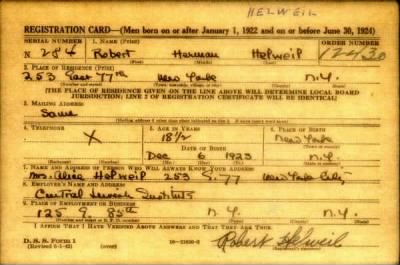 HELWEIL
REGISTRATION CARD—(Men born on or after January 1, 1922 and on or before June 30, 1924)
SERIAL NUMBER 1. NAME (Print) ORDER NUMBER
N 284 Robert Herman Helweil 12430
2. PLACE OF RESIDENCE (Print)
253 East 77th New York N.Y.
(THE PLACE OF RESIDENCE GIVEN ON THE LINE ABOVE WILL DETERMINE LOCAL BOARD
JURISDICTION; LINE 2 OF REGISTRATION CERTIFICATE WILL BE IDENTICAL)
3. MAILING ADDRESS
Same
4. TELEPHONE 5. AGE IN YEARS 6. PLACE OF BIRTH
X 18½ New York
DATE OF BIRTH
Dec 6 1923 N.Y.
7. NAME AND ADDRESS OF PERSON WHO WILL ALWAYS KNOW YOUR ADDRESS
Mrs. Alice Helweil 253 E. 77 New York City
8. EMPLOYER'S NAME AND ADDRESS
Central Institute
9. PLACE OF EMPLOYMENT OR BUSINESS
125 E 85th N.Y. N.Y.
I AFFIRM THAT I HAVE VERIFIED ABOVE ANSWERS AND THAT THEY ARE TRUE.
D. S. S. Form 1
(Revised 6-1-42)
Robert Helweil